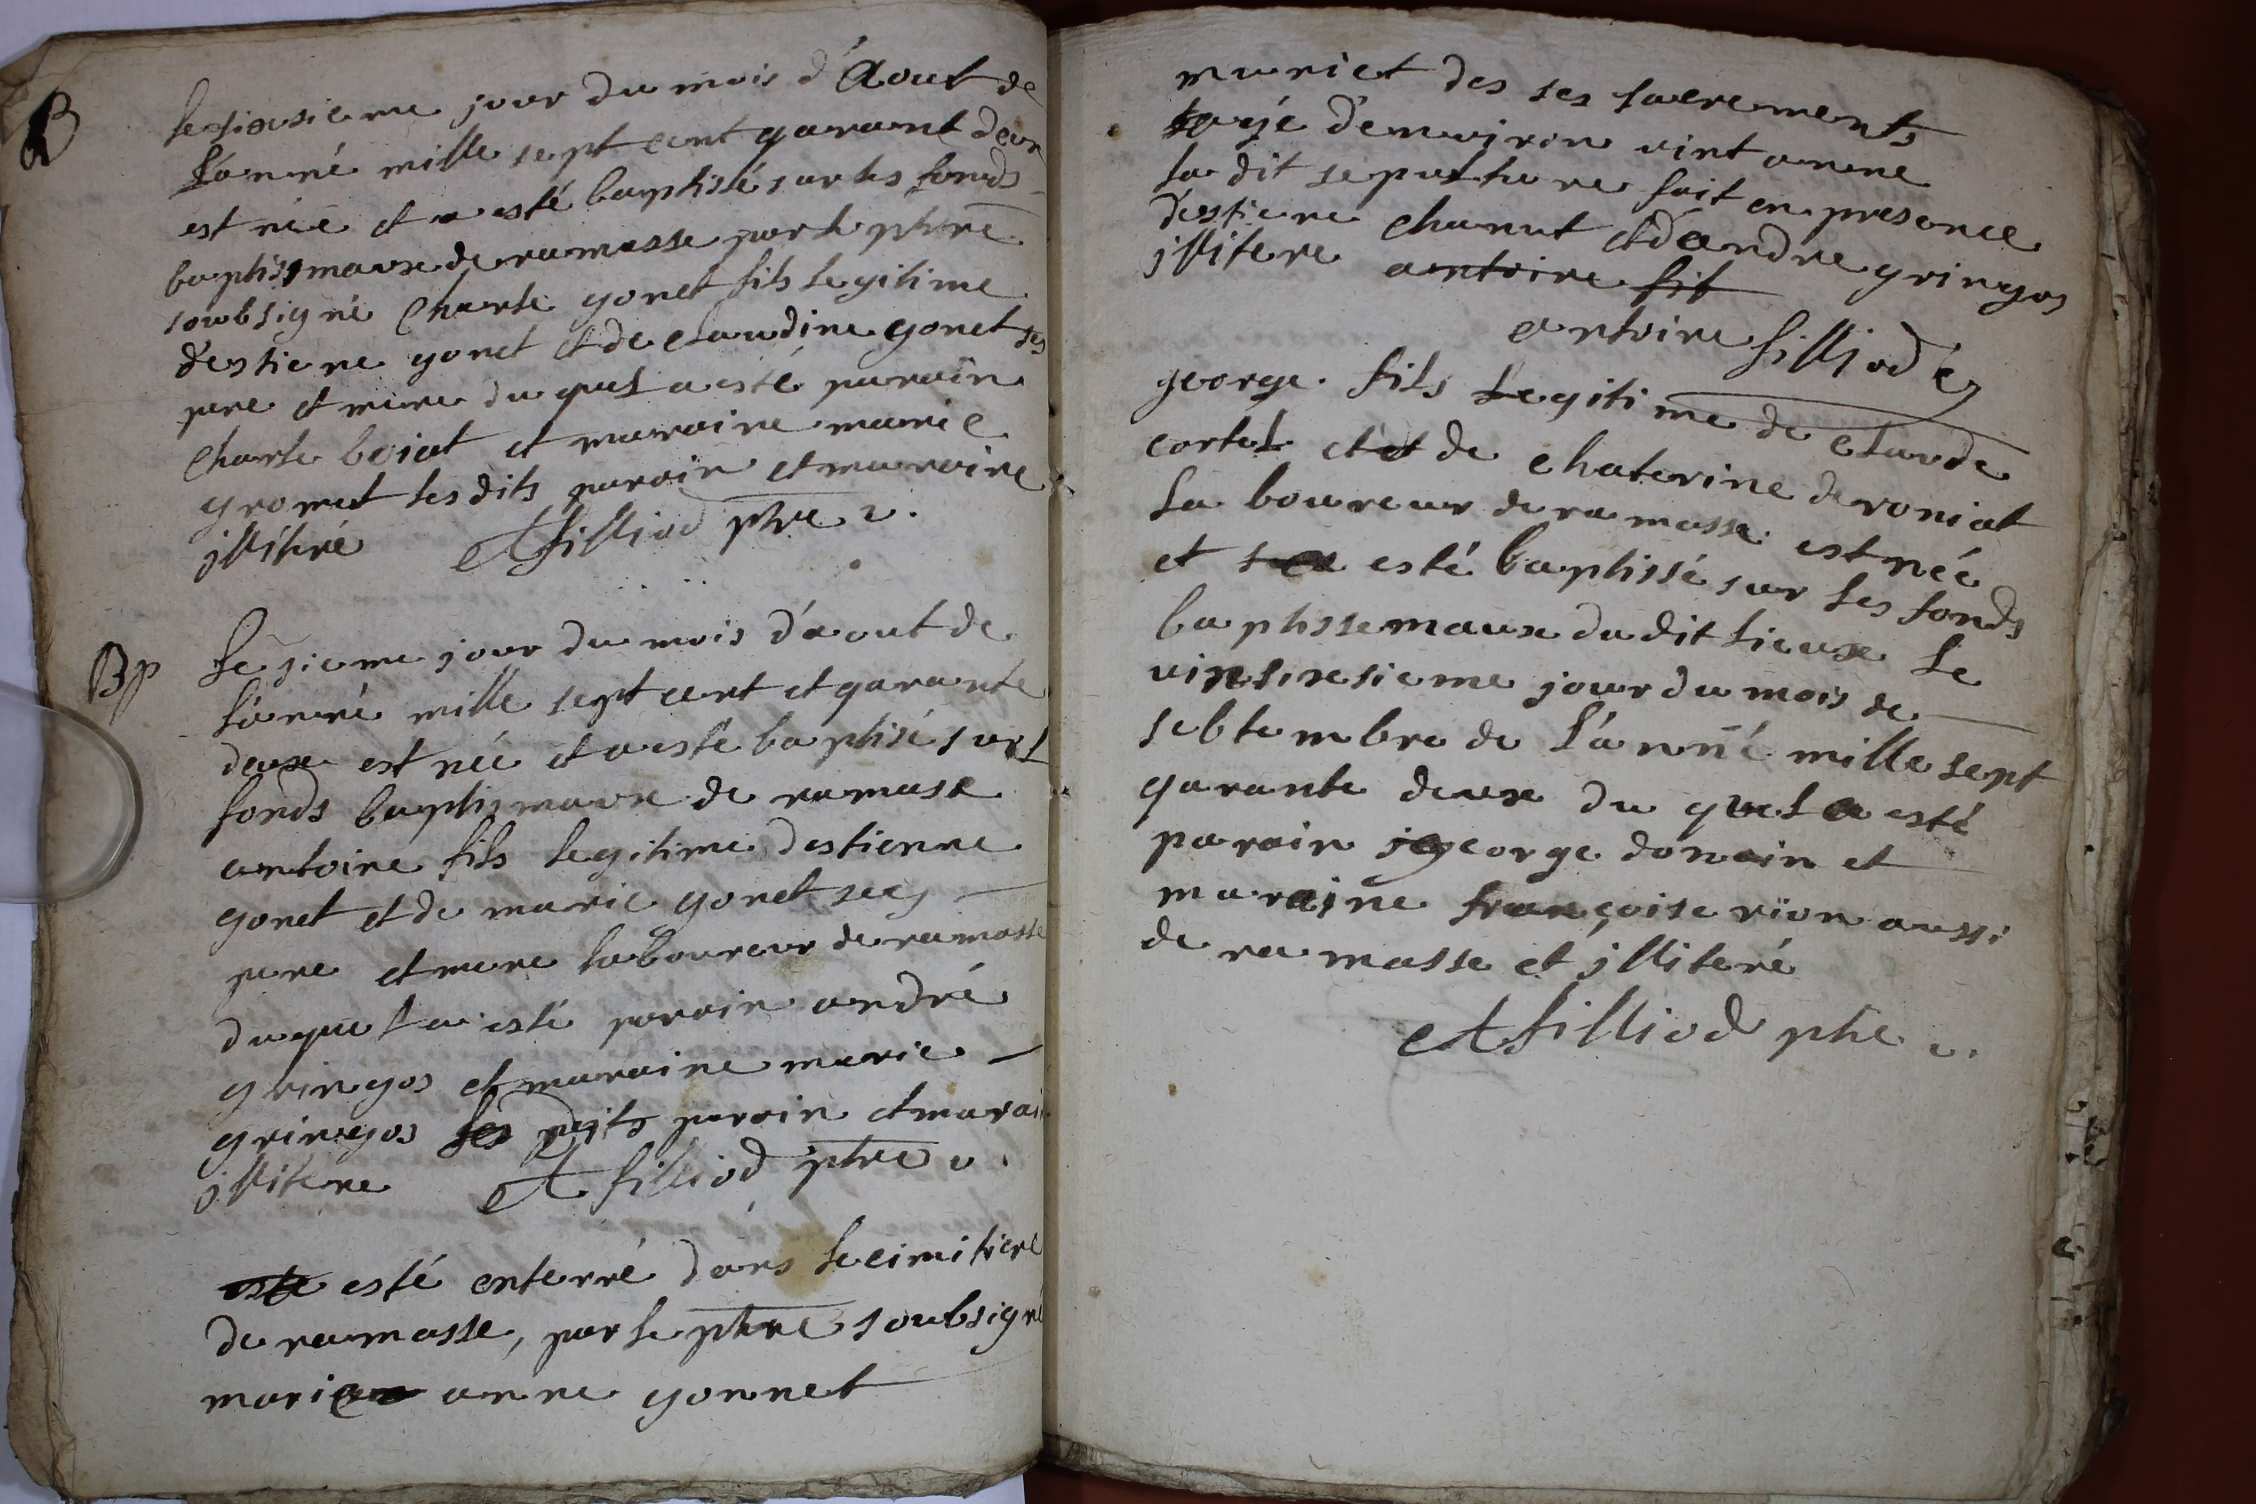 B
le sixsieme jour du mois d'Aout de
l'anné mille sept cent qarant deux
est née et a esté baptisé sur les fonds
baptismaux de ramasse par le ptre
soubsigné Charle gonet fils legitime
d'estiene gonet et de claudine gonet ses
pere et mere du quel a esté parain
Charle boiat et maraine marie
gromet les dits parain et maraine
jllitéré A filliod ptre v.
Bp
le sieme jour du mois d'aout de
l'anné mille sept cent et qarante
deux est née et a esté baptisé sur l
fonds baptismaux de ramase
antoine fils legitime destienne
gonet et de marie gonet ses
pere et mere laboureur de ramasse
duquel a esté parain andré
gringos et maraine marie
gringos les dits parain et marai
jllitere A filliod ptre v.
este esté enterré dans le cimitiere
de ramasse, par le ptre soubsigné
marie anne gonnet
muriet des ses sacrements
agé d'enuiron vint anne
la dit sepulture fait en presence
d'estiene chanut et d'andre gringos
jllitere antoine fil
antoine filliod
george fils legitime de claude
cortel et de chaterine deroniat
laboureur de ramasse est née
et a esté baptissé sur les fonds
baptissemaux du dit lieux le
vinsixsieme jour du mois de
sebtembre de l'anné mille sept
qarante deux du quel a esté
parain george donain et
maraine françoise rion aussi
de ramasse et jlliteré
A filliod ptre v.